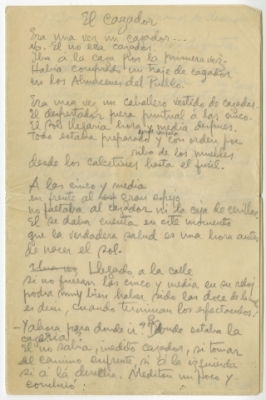 El Cazador
Era una vez un cazador...
No. El no era cazador.
Iba a la caza por la primera vez.
Había comprado un traje de cazador
en los Almacenes del Pueblo.
Era una vez un caballero vestido de cazador.
El despertador puesto puntual a las cinco.
El sol llegaría hora y media después.
Todo estaba preparado y con orden por
encima de los muebles
desde los calcetines hasta el fusil.
A las cinco y media
en frente al gran espejo
no faltaba al cazador ni la caja de cerillas.
El se daba cuenta en este momento
que la verdadera salud es una hora antes
de nacer el sol.
Llegado a la calle
si no fueran las cinco y media en su reloj
podría muy bien haber sido las doce de la
es decir, cuando terminan los espectáculos.
- Y ahora para donde ir? Donde estaba la
cacería?
El no sabía, inédito cazador, si tomar
el camino enfrente, si a la izquierda
si a la derecha. Meditó un poco y
concluyó: